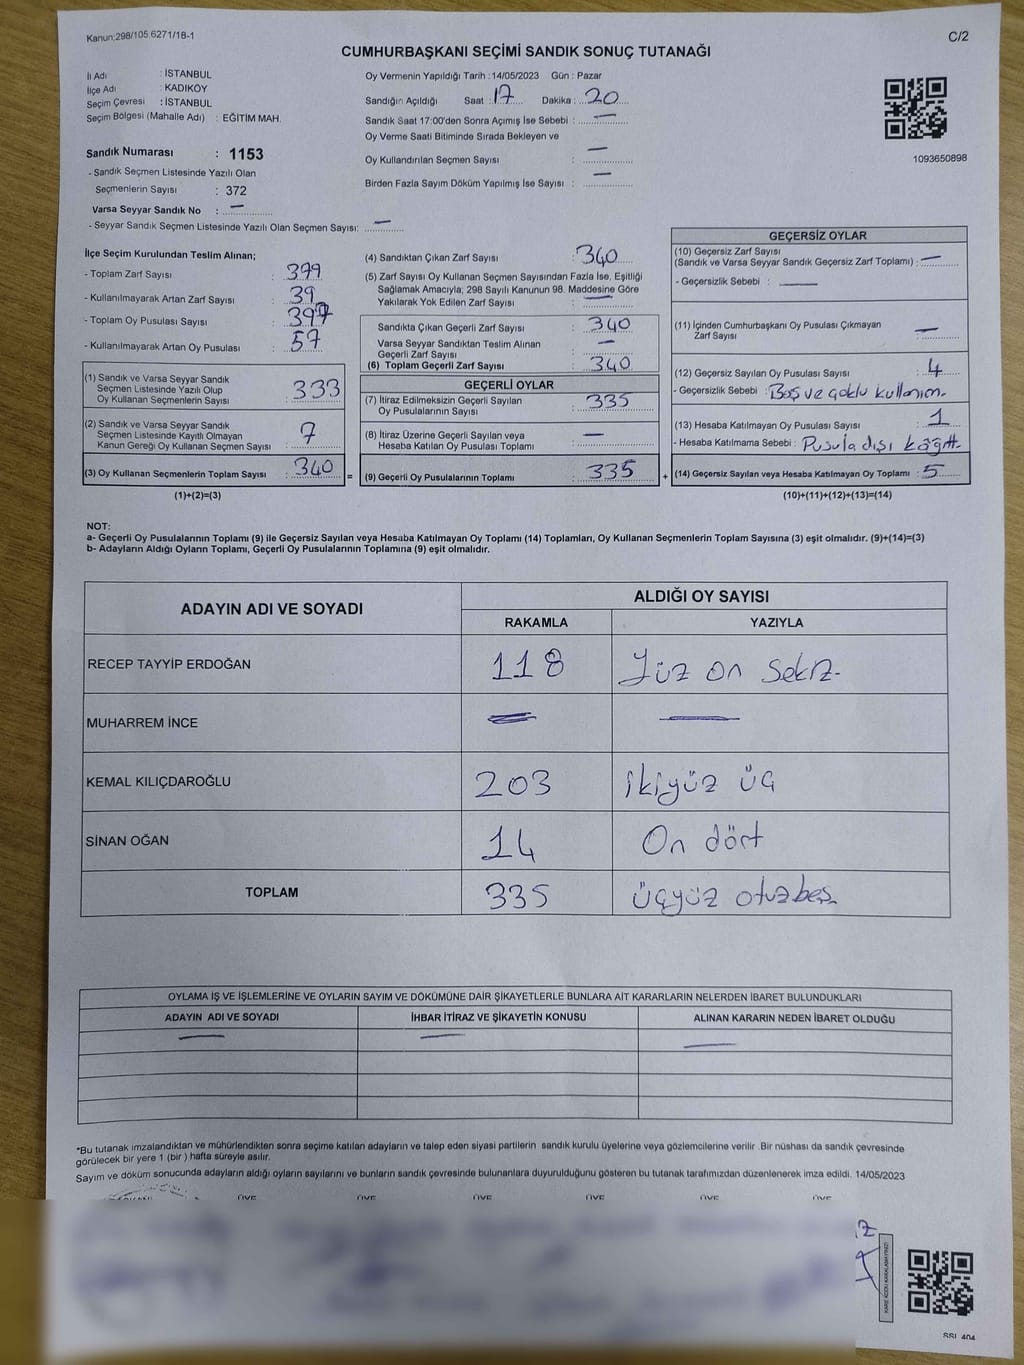 Kanun:298/105.6271/18-1
C/2
CUMHURBAŞKANI SEÇİMİ SANDIK SONUÇ TUTANAĞI
İl Adı : İSTANBUL
İlçe Adı : KADIKÖY
Seçim Çevresi : İSTANBUL
Seçim Bölgesi (Mahalle Adı) : EĞİTİM MAH.
Sandık Numarası : 1153
- Sandık Seçmen Listesinde Yazılı Olan
Seçmenlerin Sayısı : 372
Varsa Seyyar Sandık No : —
- Seyyar Sandık Seçmen Listesinde Yazılı Olan Seçmen Sayısı: —
Oy Vermenin Yapıldığı Tarih :14/05/2023 Gün : Pazar
Sandığın Açıldığı Saat : 17 Dakika : 20
Sandık Saat 17:00'den Sonra Açımış İse Sebebi : —
Oy Verme Saati Bitiminde Sırada Bekleyen ve
Oy Kullandırılan Seçmen Sayısı : —
Birden Fazla Sayım Döküm Yapılmış İse Sayısı : —
1093650898
İlçe Seçim Kurulundan Teslim Alınan;
- Toplam Zarf Sayısı : 379
- Kullanılmayarak Artan Zarf Sayısı : 39
- Toplam Oy Pusulası Sayısı : 397
- Kullanılmayarak Artan Oy Pusulası : 57
(1) Sandık ve Varsa Seyyar Sandık
Seçmen Listesinde Yazılı Olup
Oy Kullanan Seçmenlerin Sayısı : 333
(2) Sandık ve Varsa Seyyar Sandık
Seçmen Listesinde Kayıtlı Olmayan
Kanun Gereği Oy Kullanan Seçmen Sayısı : 7
(3) Oy Kullanan Seçmenlerin Toplam Sayısı : 340
(1)+(2)=(3)
(4) Sandıktan Çıkan Zarf Sayısı : 340
(5) Zarf Sayısı Oy Kullanan Seçmen Sayısından Fazla İse, Eşitliği
Sağlamak Amacıyla; 298 Sayılı Kanunun 98. Maddesine Göre
Yakılarak Yok Edilen Zarf Sayısı : —
Sandıkta Çıkan Geçerli Zarf Sayısı : 340
Varsa Seyyar Sandıktan Teslim Alınan
Geçerli Zarf Sayısı : —
(6) Toplam Geçerli Zarf Sayısı : 340
GEÇERLİ OYLAR
(7) İtiraz Edilmeksizin Geçerli Sayılan
Oy Pusulalarının Sayısı : 335
(8) İtiraz Üzerine Geçerli Sayılan veya
Hesaba Katılan Oy Pusulası Toplamı : —
= (9) Geçerli Oy Pusulalarının Toplamı : 335 +
GEÇERSİZ OYLAR
(10) Geçersiz Zarf Sayısı
(Sandık ve Varsa Seyyar Sandık Geçersiz Zarf Toplamı) : —
- Geçersizlik Sebebi : —
(11) İçinden Cumhurbaşkanı Oy Pusulası Çıkmayan
Zarf Sayısı : —
(12) Geçersiz Sayılan Oy Pusulası Sayısı : 4
- Geçersizlik Sebebi : Boş ve çoklu kullanım.
(13) Hesaba Katılmayan Oy Pusulası Sayısı : 1
- Hesaba Katılmama Sebebi : Pusula dışı kâğıt.
(14) Geçersiz Sayılan veya Hesaba Katılmayan Oy Toplamı : 5
(10)+(11)+(12)+(13)=(14)
NOT:
a- Geçerli Oy Pusulalarının Toplamı (9) ile Geçersiz Sayılan veya Hesaba Katılmayan Oy Toplamı (14) Toplamları, Oy Kullanan Seçmenlerin Toplam Sayısına (3) eşit olmalıdır. (9)+(14)=(3)
b- Adayların Aldığı Oyların Toplamı, Geçerli Oy Pusulalarının Toplamına (9) eşit olmalıdır.
ADAYIN ADI VE SOYADI
ALDIĞI OY SAYISI
RAKAMLA YAZIYLA
RECEP TAYYİP ERDOĞAN 118 Yüz on sekiz.
MUHARREM İNCE — —
KEMAL KILIÇDAROĞLU 203 ikiyüz üç
SİNAN OĞAN 14 On dört
TOPLAM 335 üçyüz otuzbeş.
OYLAMA İŞ VE İŞLEMLERİNE VE OYLARIN SAYIM VE DÖKÜMÜNE DAİR ŞİKAYETLERLE BUNLARA AİT KARARLARIN NELERDEN İBARET BULUNDUKLARI
ADAYIN ADI VE SOYADI İHBAR İTİRAZ VE ŞİKAYETİN KONUSU ALINAN KARARIN NEDEN İBARET OLDUĞU
— — —
*Bu tutanak imzalandıktan ve mühürlendikten sonra seçime katılan adayların ve talep eden siyasi partilerin sandık kurulu üyelerine veya gözlemcilerine verilir .Bir nüshası da sandık çevresinde
görülecek bir yere 1 (bir ) hafta süreyle asılır.
Sayım ve döküm sonucunda adayların aldığı oyların sayılarını ve bunların sandık çevresinde bulunanlara duyurulduğunu gösteren bu tutanak tarafımızdan düzenlenerek imza edildi. 14/05/2023
ÜYE ÜYE ÜYE ÜYE ÜYE ÜYE